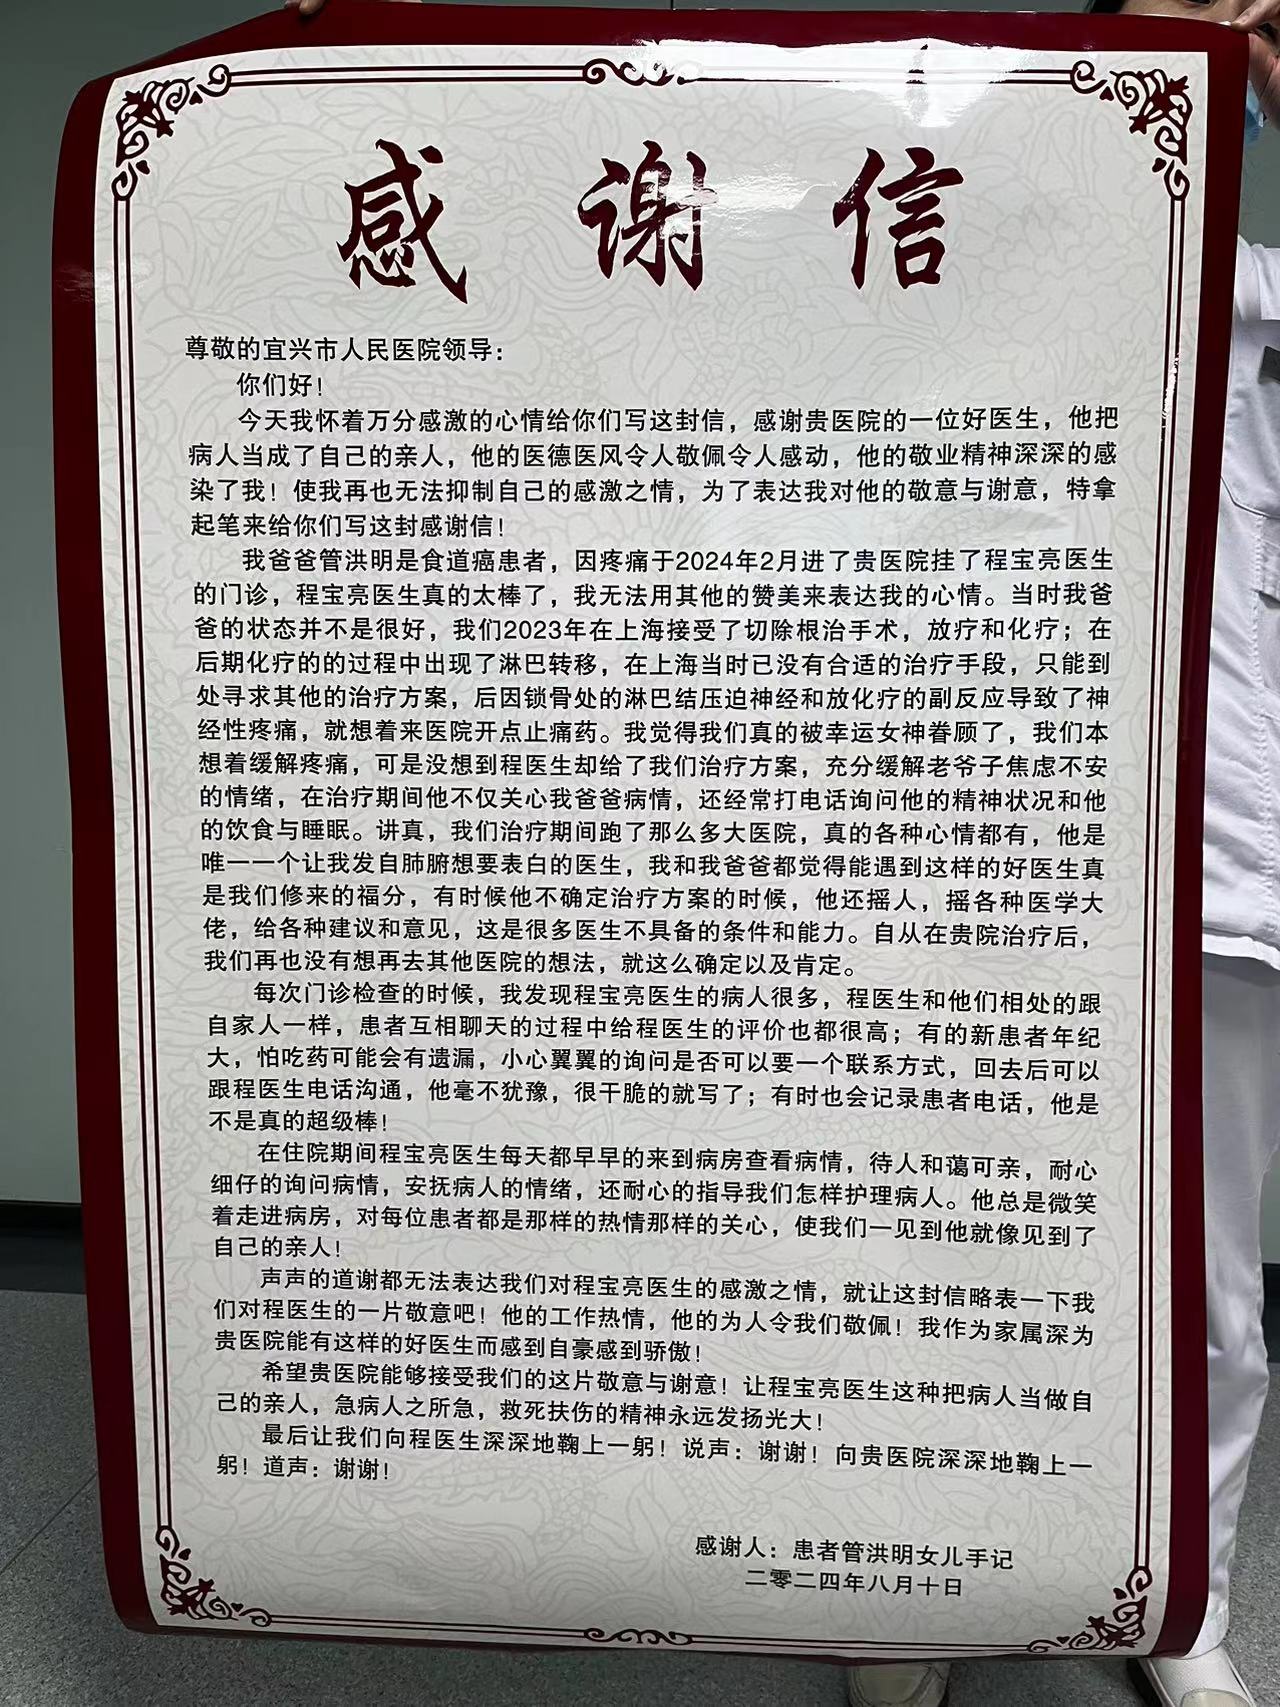 感谢信
尊敬的宜兴市人民医院领导：
你们好！
今天我怀着万分感激的心情给你们写这封信，感谢贵医院的一位好医生，他把
病人当成了自己的亲人，他的医德医风令人敬佩令人感动，他的敬业精神深深的感
染了我！使我再也无法抑制自己的感激之情，为了表达我对他的敬意与谢意，特拿
起笔来给你们写这封感谢信！
我爸爸管洪明是食道癌患者，因疼痛于2024年2月进了贵医院挂了程宝亮医生
的门诊，程宝亮医生真的太棒了，我无法用其他的赞美来表达我的心情。当时我爸
爸的状态并不是很好，我们2023年在上海接受了切除根治手术，放疗和化疗；在
后期化疗的的过程中出现了淋巴转移，在上海当时已没有合适的治疗手段，只能到
处寻求其他的治疗方案，后因锁骨处的淋巴结压迫神经和放化疗的副反应导致了神
经性疼痛，就想着来医院开点止痛药。我觉得我们真的被幸运女神眷顾了，我们本
想着缓解疼痛，可是没想到程医生却给了我们治疗方案，充分缓解老爷子焦虑不安
的情绪，在治疗期间他不仅关心我爸爸病情，还经常打电话询问他的精神状况和他
的饮食与睡眠。讲真，我们治疗期间跑了那么多大医院，真的各种心情都有，他是
唯一一个让我发自肺腑想要表白的医生，我和我爸爸都觉得能遇到这样的好医生真
是我们修来的福分，有时候他不确定治疗方案的时候，他还摇人，摇各种医学大
佬，给各种建议和意见，这是很多医生不具备的条件和能力。自从在贵院治疗后，
我们再也没有想再去其他医院的想法，就这么确定以及肯定。
每次门诊检查的时候，我发现程宝亮医生的病人很多，程医生和他们相处的跟
自家人一样，患者互相聊天的过程中给程医生的评价也都很高；有的新患者年纪
大，怕吃药可能会有遗漏，小心翼翼的询问是否可以要一个联系方式，回去后可以
跟程医生电话沟通，他毫不犹豫，很干脆的就写了；有时也会记录患者电话，他是
不是真的超级棒！
在住院期间程宝亮医生每天都早早的来到病房查看病情，待人和蔼可亲，耐心
细仔的询问病情，安抚病人的情绪，还耐心的指导我们怎样护理病人。他总是微笑
着走进病房，对每位患者都是那样的热情那样的关心，使我们一见到他就像见到了
自己的亲人！
声声的道谢都无法表达我们对程宝亮医生的感激之情，就让这封信略表一下我
们对程医生的一片敬意吧！他的工作热情，他的为人令我们敬佩！我作为家属深为
贵医院能有这样的好医生而感到自豪感到骄傲！
希望贵医院能够接受我们的这片敬意与谢意！让程宝亮医生这种把病人当做自
己的亲人，急病人之所急，救死扶伤的精神永远发扬光大！
最后让我们向程医生深深地鞠上一躬！说声：谢谢！向贵医院深深地鞠上一
躬！道声：谢谢！
感谢人：患者管洪明女儿手记
二零二四年八月十日